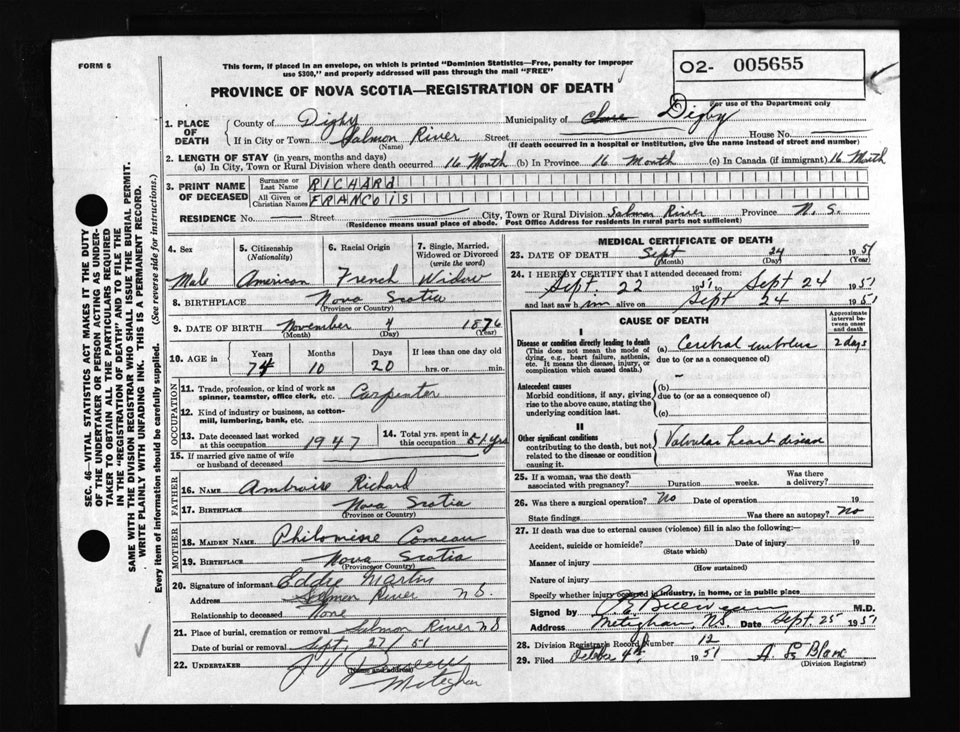 FORM 6
This form, if placed in an envelope, on which is printed "Dominion Statistics—Free, penalty for improper
use $300," and properly addressed will pass through the mail "FREE"
O2- 005655
For use of the Department only
PROVINCE OF NOVA SCOTIA—REGISTRATION OF DEATH
1. PLACE OF DEATH
County of Digby Municipality of Clare Digby
If in City or Town Salmon River Street House No.
(Name) (If death occurred in a hospital or institution, give the name instead of street and number)
2. LENGTH OF STAY (in years, months and days)
(a) In City, Town or Rural Division where death occurred 16 Month (b) In Province 16 Month (c) In Canada (if immigrant) 16 Month
3. PRINT NAME OF DECEASED
Surname or Last Name RICHARD
All Given or Christian Names FRANCOIS
RESIDENCE No. Street City, Town or Rural Division Salmon River Province N.S.
(Residence means usual place of abode. Post Office Address for residents in rural parts not sufficient)
4. Sex 5. Citizenship (Nationality) 6. Racial Origin 7. Single, Married, Widowed or Divorced (write the word)
Male American French Widow
8. BIRTHPLACE Nova Scotia
(Province or Country)
9. DATE OF BIRTH November 4 1876
(Month) (Day) (Year)
10. AGE in Years Months Days If less than one day old
74 10 20 hrs. or min.
OCCUPATION
11. Trade, profession, or kind of work as
spinner, teamster, office clerk, etc. Carpenter
12. Kind of industry or business, as cotton-
mill, lumbering, bank, etc.
13. Date deceased last worked
at this occupation 1947
14. Total yrs. spent in
this occupation 51 yrs
15. If married give name of wife
or husband of deceased
FATHER
16. NAME Ambroise Richard
17. BIRTHPLACE Nova Scotia
(Province or Country)
MOTHER
18. MAIDEN NAME Philomise Comeau
19. BIRTHPLACE Nova Scotia
(Province or Country)
20. Signature of informant Eddie Martin
Address Salmon River N.S.
Relationship to deceased None
21. Place of burial, cremation or removal Salmon River N S
Date of burial or removal Sept, 27/51
22. UNDERTAKER
(Name and address)
Meteghan
MEDICAL CERTIFICATE OF DEATH
23. DATE OF DEATH Sept 24 1951
(Month) (Day) (Year)
24. I HEREBY CERTIFY that I attended deceased from:
Sept. 22 1951 to Sept 24 1951
and last saw him alive on Sept 24 1951
CAUSE OF DEATH
Approximate interval between onset and death
I
Disease or condition directly leading to death
(This does not mean the mode of
dying, e.g., heart failure, asthenia,
etc. It means the disease, injury, or
complication which caused death.)
(a) Cerebral embolus 2 days
due to (or as a consequence of)
Antecedent causes
Morbid conditions, if any, giving
rise to the above cause, stating the
underlying condition last.
(b) —
due to (or as a consequence of)
(c)
II
Other significant conditions
contributing to the death, but not
related to the disease or condition
causing it.
Valvular heart disease
25. If a woman, was the death
associated with pregnancy? Duration weeks. Was there
a delivery?
26. Was there a surgical operation? No Date of operation 19
State findings Was there an autopsy? No
27. If death was due to external causes (violence) fill in also the following:—
Accident, suicide or homicide? Date of injury 19
(State which)
Manner of injury
(How sustained)
Nature of injury
Specify whether injury occurred in industry, in home, or in public place
Signed by M.D.
Address Meteghan, N.S. Date Sept. 25 1951
28. Division Registrar's Record Number 12
29. Filed 4th 1951 A. L. Blanc
(Division Registrar)
SEC. 46—VITAL STATISTICS ACT MAKES IT THE DUTY
OF THE UNDERTAKER OR PERSON ACTING AS UNDER-
TAKER TO OBTAIN ALL THE PARTICULARS REQUIRED
IN THE "REGISTRATION OF DEATH" AND TO FILE THE
SAME WITH THE DIVISION REGISTRAR WHO SHALL ISSUE THE BURIAL PERMIT.
WRITE PLAINLY WITH UNFADING INK. THIS IS A PERMANENT RECORD.
Every item of information should be carefully supplied. (See reverse side for instructions.)